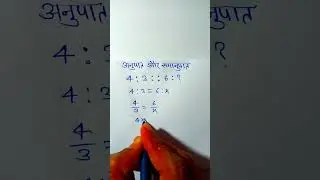 अनुपात और समानुपात
4 : 3 : : 6 : ?
4 : 3 = 6 : x
4/3 = 6/x
4x